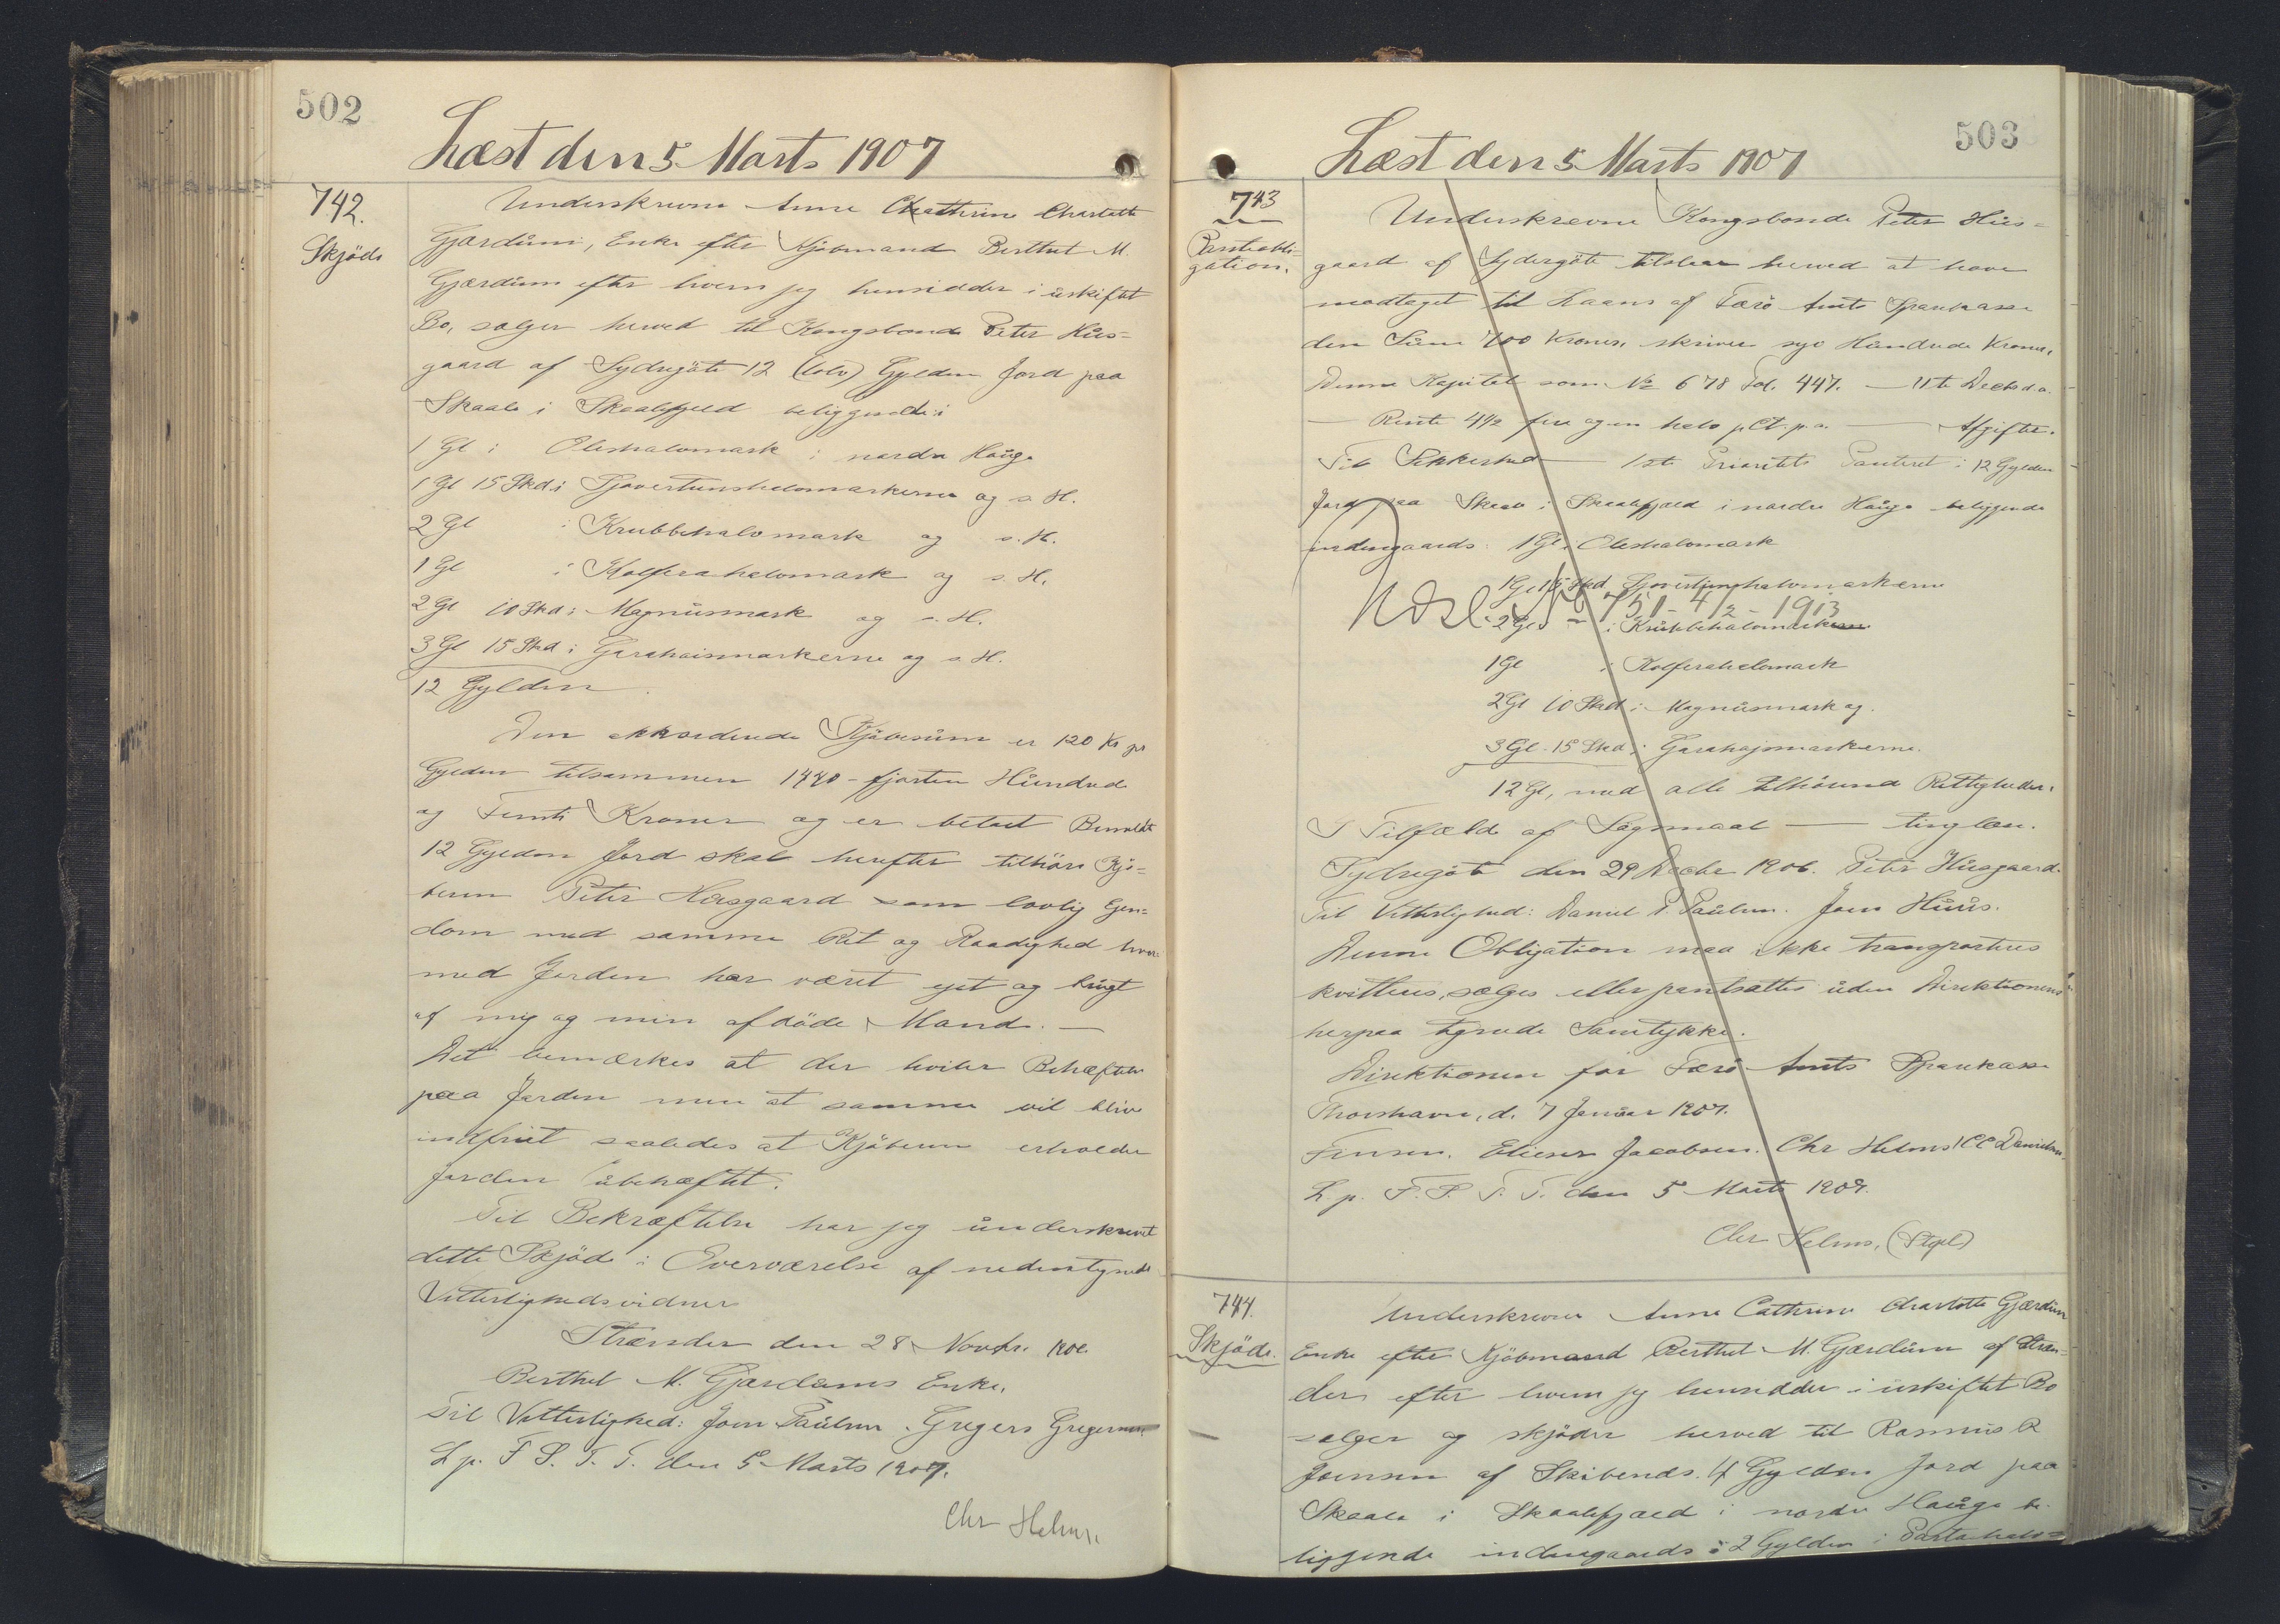 502
Læst den 5 Marts 1907
742.
Skjöde
Underskrevne Anne Cathrine Charlotte
Gjærdum, Enke efter Kjöbmand Berthel M.
Gjærdum efter hvem jeg hensidder i uskiftet
Bo, sælger herved til Kongsbonde Peter Hús-
gaard af Sydregöte 12 (tolv) Gylden Jord paa
Skaale i Skaalefjeld beliggende i
1 Gl i halvmark i nordre Haúge
1 Gl 15 Skd i og s. H.
2 Gl i Krubbehalvmark og s. H.
1 Gl i Kolferahalvmark og s. H.
2 Gl 10 Skd i Magnúsmark og s. H.
3 Gl 15 Skd i Garahaismarkerne og s. H.
12 Gylden.
Den akkorderede Kjöbesúm er 120 Kr pr
Gylden tilsammen 1440 - fjorten Húndrede
og Kroner og er betalt Bemeldte
12 Gylden Jord skal herefter tilhöre Kjö-
beren Peter Húsgaard som lovlig Ejen-
dom med samme Ret og Raadighed hvor-
med Jorden har været ejet og brúgt
af mig og min afdöde Mand. —
Det bemærkes at der hviler Behæftelse
paa Jorden men at samme vil blive
indfriet saaledes at Kjöberen erholder
Jorden úbehæftet.
Til Bekræftelse har jeg únderskrevet
dette Skjöde i Overværelse af nedentegnede
Vitterlighedsvidner
Strænder den 28 Novbr. 1906
Berthel M. Gjærdums Enke.
Til Vitterlighed: Joen Paúlsen. Gregers Gregersen
L. p. F. S. T. T. den 5 Marts 1907.
Chr Helms.
503
Læst den 5 Marts 1907
743
Panteobli-
gation.
Underskrevne Kongsbonde Peter Hús-
gaard af Sydregöte tilstaar herved at have
modtaget til Laans af Færö Amts Sparekasse
den Súm 700 Kroner, skriver syv Húndrede Kroner.
Denne Kapital som No 678 Fol. 447. — 11te Decb d. a.
— Rente 4 1/2 fire og en halv pCt. p. a. — Afgifter.
Til Sikkerhed — 1ste Prioritets Panteret i 12 Gylden
Jord paa Skaale i Skaalefjeld i nordre Haúge beliggende
indengaards: 1 Gl i halvmark
1 Gl 15 Skd halvmarkerne
Udsl. No 751 - 4/2 - 1913
2 Gl - i Krúbbehalvmark
1 Gl i Kolferahalvmark
2 Gl 10 Skd i Magnúsmark og
3 Gl. 15 Skd i Garahajsmarkerne.
12 Gl, med alle tilhörende Rettigheder.
I Tilfælde af Sögsmaal — tinglæs.
Sydregöte den 29 Decbr 1906. Peter Húsgaard.
Til Vitterlighed: Daniel P. Paúlsen. Joen Húús.
Denne Obligation maa ikke transporteres
kvitteres, sælges eller pantsættes úden Direktionens
herpaa tegnede Samtykke.
Direktionen for Færö Amts Sparekasse
Thorshavn, d. 7 Janúar 1907.
Finsen. Elieser Jacobsen. Chr Helms. C C Danielsen.
L p. F. S. T. T. den 5 Marts 1907.
Chr Helms. (Stpl)
744.
Skjöde.
Underskrevne Anne Cathrine Charlotte Gjærdúm
Enke efter Kjöbmand Berthel M. Gjærdúm af Stræn-
der efter hvem jeg hensidder i úskiftet Bo
sælger og skjöder herved til Rasmús R
Joensen af Skibends. 4 Gylden Jord paa
Skaale i Skaalefjæld i nordre Haúge be-
liggende indengaards: 2 Gylden i